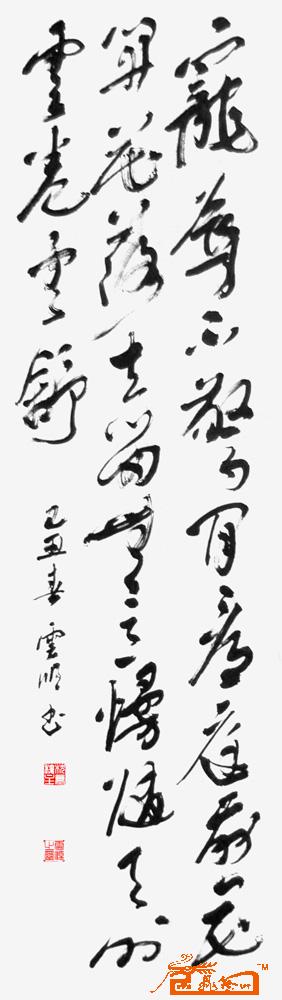 寵辱不驚閒看庭前花
開花落去留無意慢隨天外
雲卷雲舒
己丑春雲書